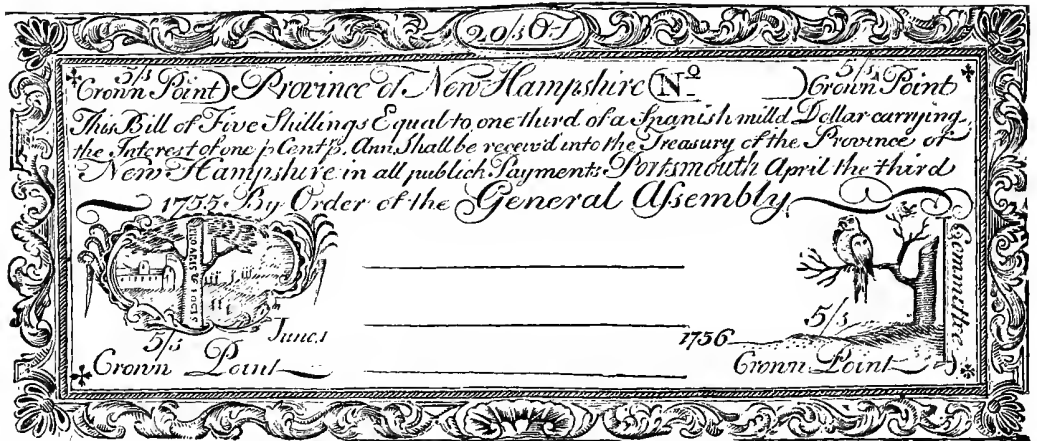 20/s O-T
5/s 5/s
Crown Point Province of New Hampshire No Crown Point
This Bill of Five Shillings Equal to one third of a Spanish mill'd Dollar carrying
the Interest of one p Cent p. Ann. Shall be receiv'd into the Treasury of the Province of
New Hampshire in all publick Payments Portsmouth April the third
1755 By Order of the General Assembly
PRO ARIS & FOCIS
Committee
5/s June 1 1756 5/s
Crown Point Crown Point